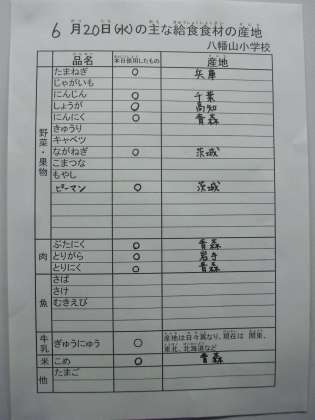 6月20日(水)の主な給食食材の産地
八幡山小学校
品名 本日使用したもの 産地
野菜・果物
たまねぎ ○ 兵庫
じゃがいも
にんじん ○ 千葉
しょうが ○ 高知
にんにく ○ 青森
きゅうり
キャベツ
ながねぎ ○ 茨城
こまつな
もやし
ピーマン ○ 茨城
肉
ぶたにく ○ 青森
とりがら ○ 岩手
とりにく ○ 青森
魚
さば
さけ
むきえび
牛乳 ぎゅうにゅう ○ 産地は日々異なり、現在は 関東、
東北、北海道など
米 こめ ○ 青森
他 たまご